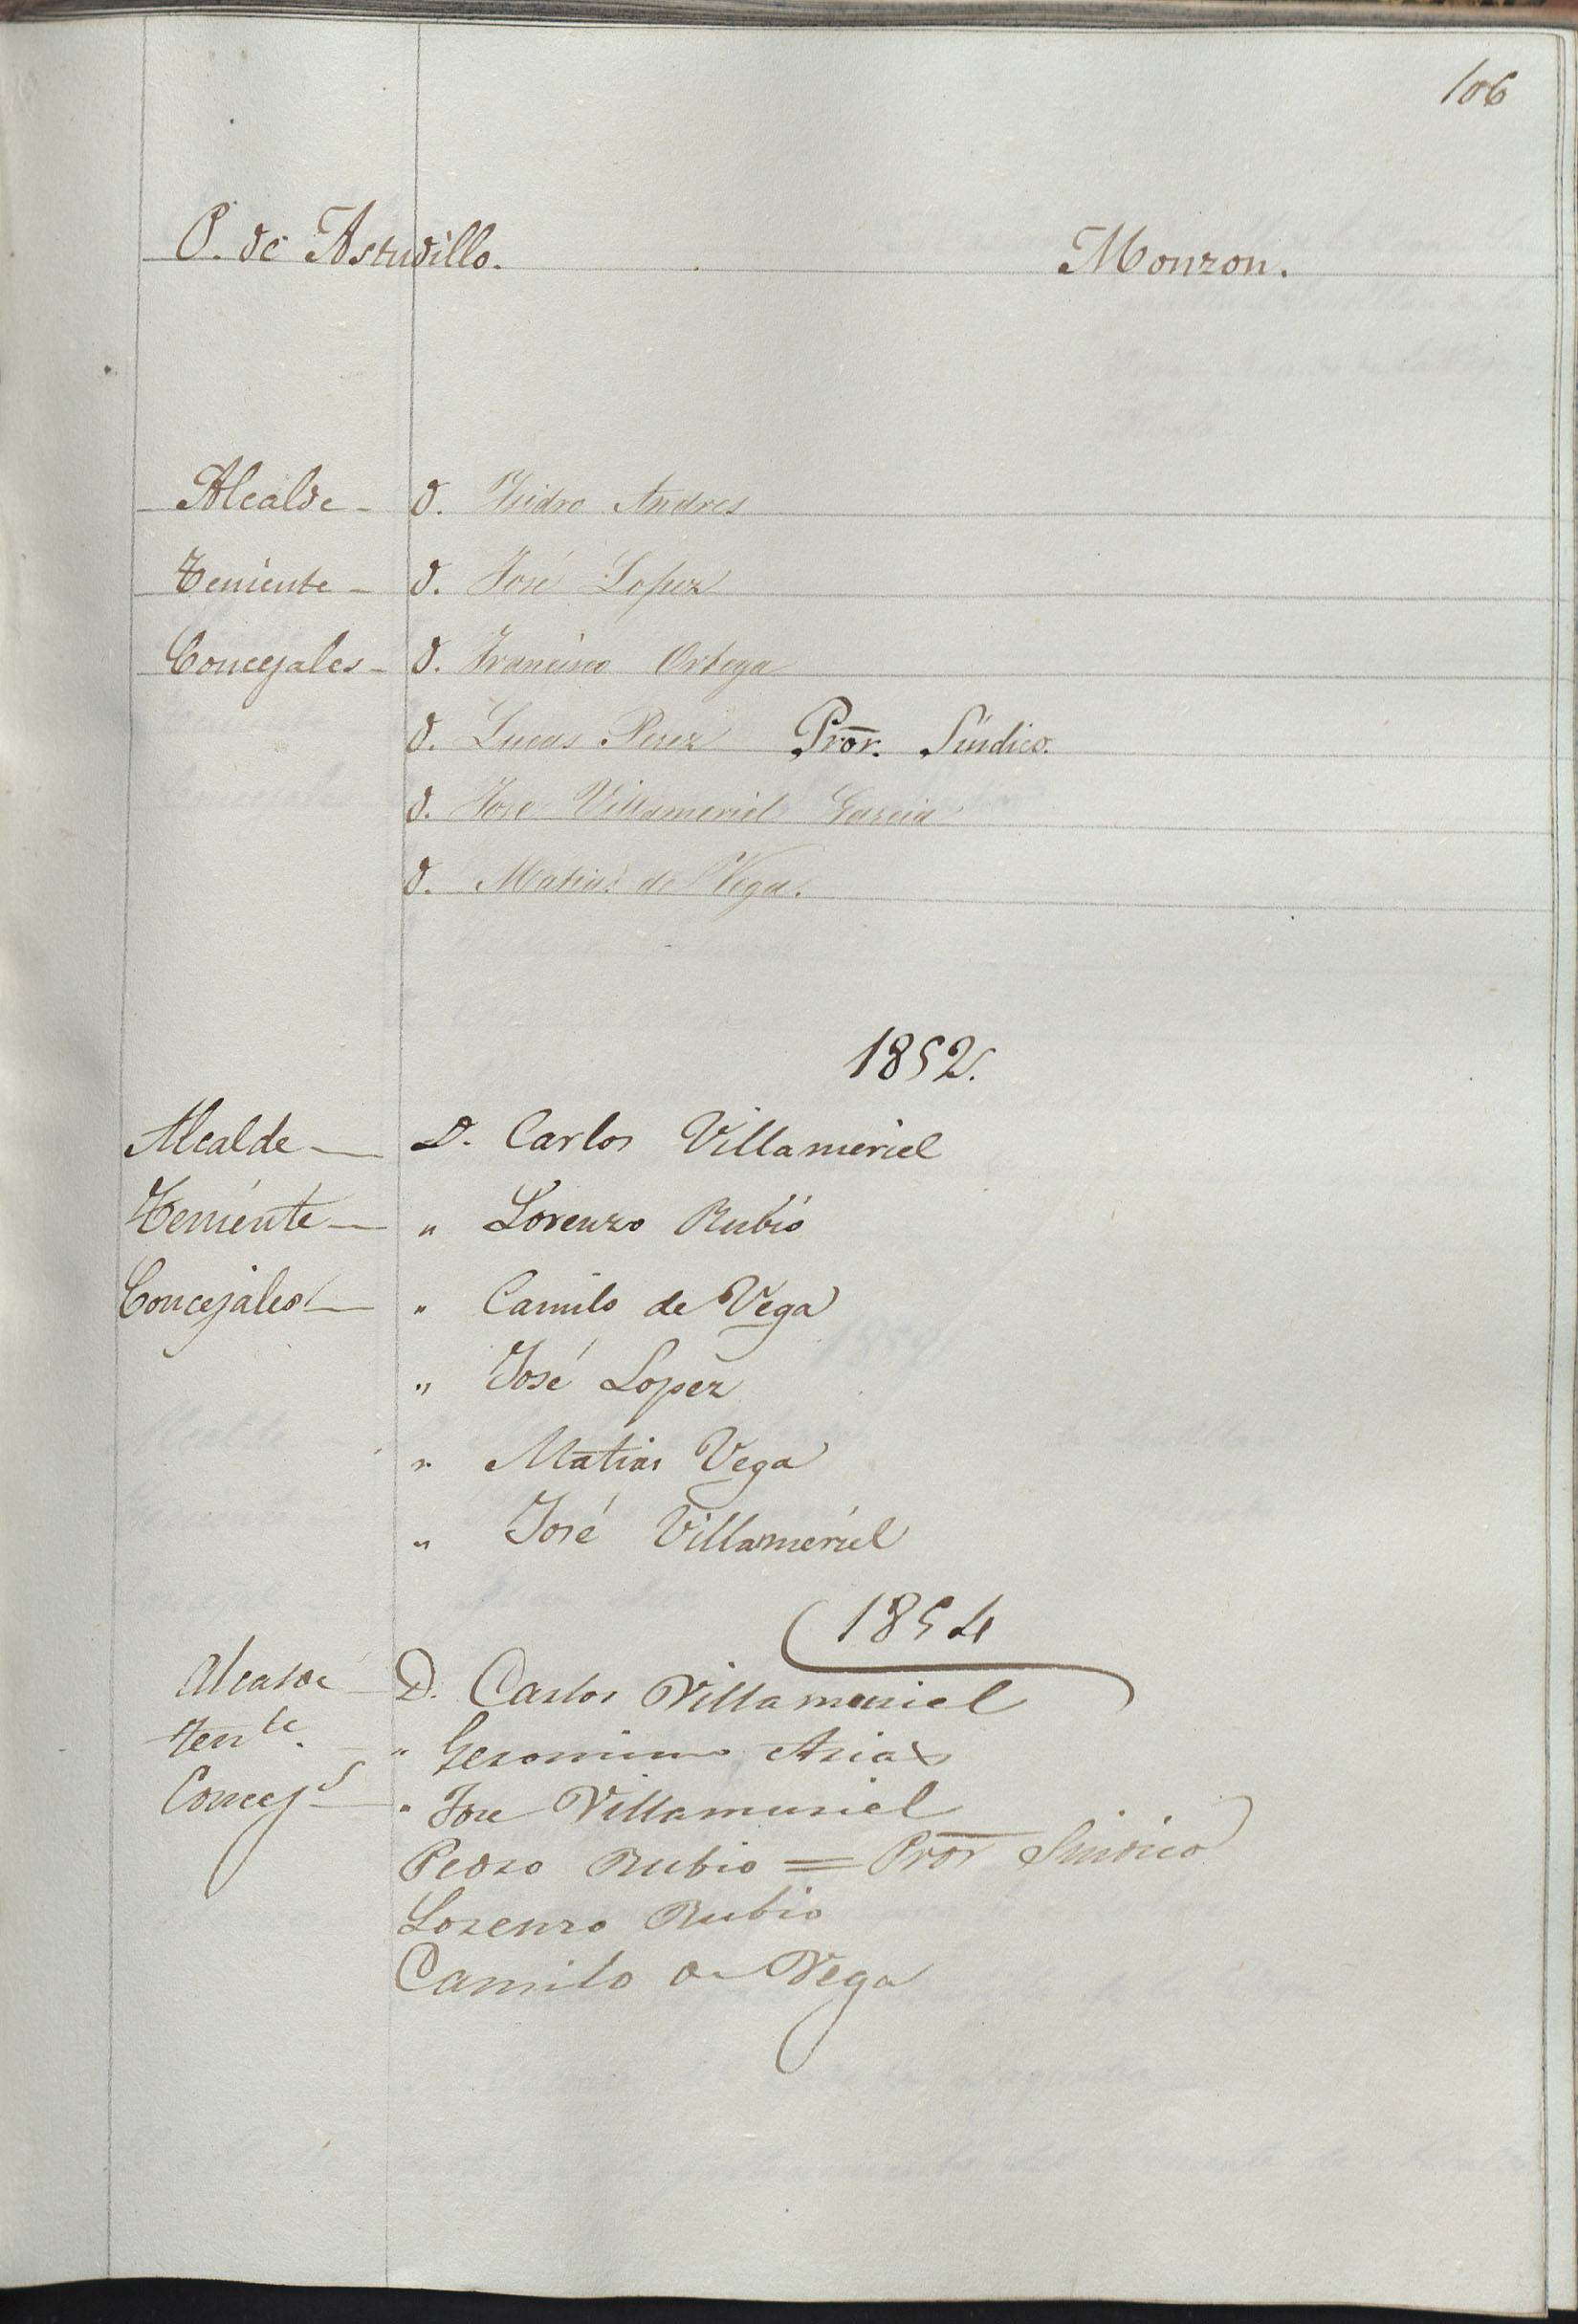 106
P. de Astudillo. Monzon.
Alcalde - D. Ysidro Andres
Teniente - D. José Lopez
Concejales - D. Francisco Ortega
D. Lucas Perez Pror. Síndico.
D. Jose Villameriel Garcia
D. Matias de Vega.
1852.
Alcalde - D. Carlos Villameriel
Teniente - " Lorenzo Rubio
Concejales - " Camilo de Vega
" José Lopez
" Matias Vega
" José Villameriel
1854
Alcalde D. Carlos Villamuriel
Tente. - " Geronimo Arias
Concejs - " Jose Villamuriel
Pedro Rubio = Pror Sindico
Lorenzo Rubio
Camilo de Vega